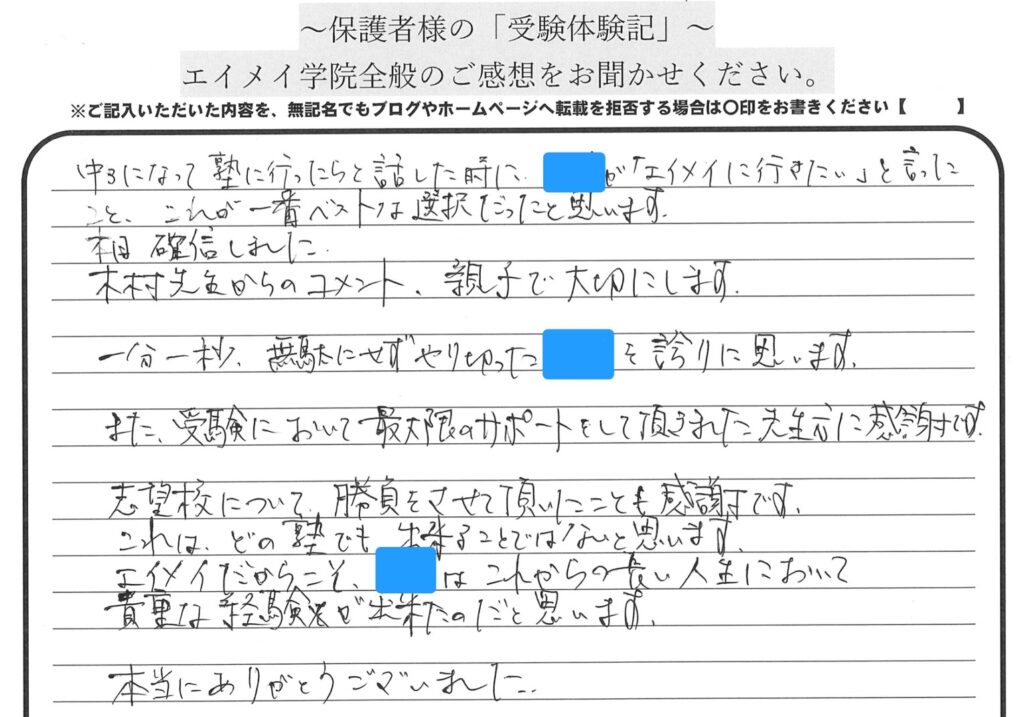 ～保護者様の「受験体験記」～
エイメイ学院全般のご感想をお聞かせください。
※ご記入いただいた内容を、無記名でもブログやホームページへ転載を拒否する場合は〇印をお書きください【　　　】
中3になって塾に行ったらと話した時に、 が「エイメイに行きたい」と言った
こと、これが一番ベストな選択だったと思います。
本日確信しました。
木村先生からのコメント、親子で大切にします。
一分一秒、無駄にせずやり切った を誇りに思います。
また、受験において最大限のサポートをして頂きました先生方に感謝です。
志望校について、勝負をさせて頂いたことも感謝です。
これは、どの塾でも出来ることではないと思います。
エイメイだからこそ、 はこれからの長い人生において
貴重な経験が出来たのだと思います。
本当にありがとうございました。